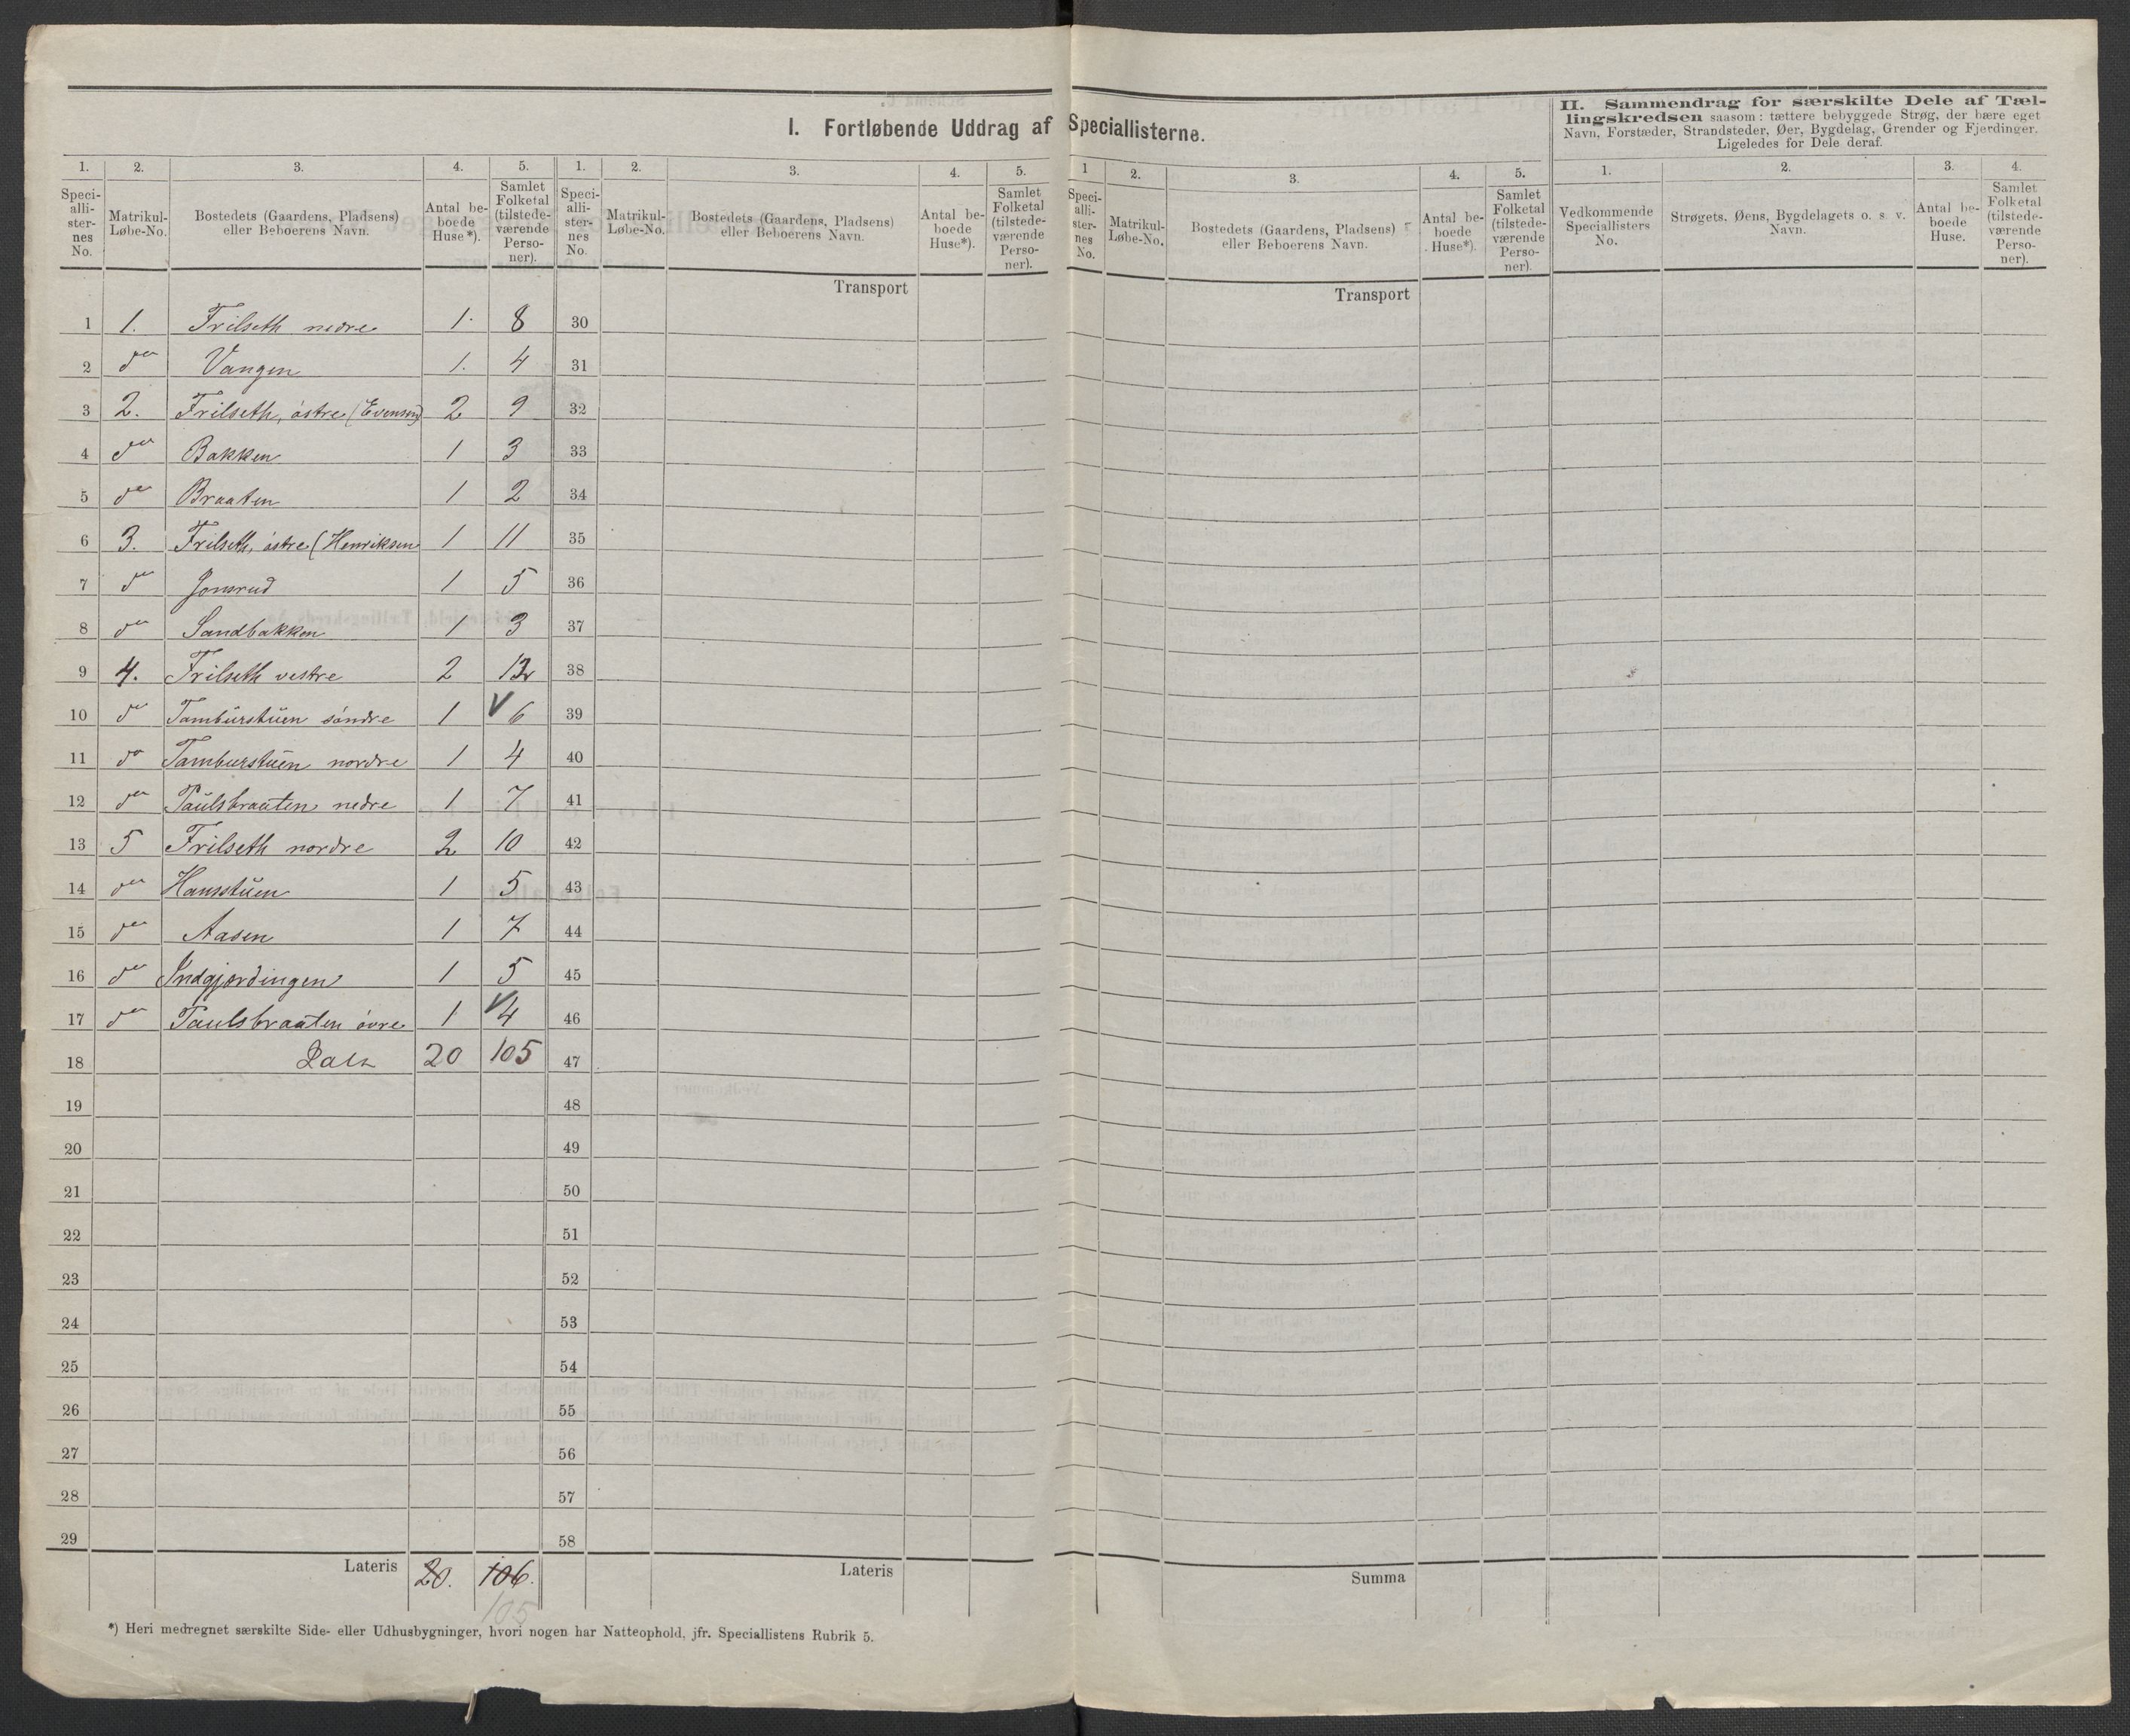 I. Fortløbende Uddrag af Speciallisterne.
II. Sammendrag for særskilte Dele af Tæl-
lingskredsen saasom: tættere bebyggede Strøg, der bære eget
Navn, Forstæder, Strandsteder, Øer, Bygdelag, Grender og Fjerdinger.
Ligeledes for Dele deraf.
1. 2. 3. 4. 5. 1. 2. 3. 4. 5. 1 2. 3. 4. 5. 1. 2. 3. 4.
Speci-alli-ster-nes No. Matrikul-Løbe-No. Bostedets (Gaardens, Pladsens) eller Beboerens Navn. Antal be-boede Huse*). Samlet Folketal (tilstede-værende Perso-ner).
Speci-alli-ster-nes No. Matrikul-Løbe-No. Bostedets (Gaardens, Pladsens) eller Beboerens Navn. Antal be-boede Huse*). Samlet Folketal (tilstede-værende Perso-ner).
Speci-alli-ster-nes No. Matrikul-Løbe-No. Bostedets (Gaardens, Pladsens) eller Beboerens Navn. Antal be-boede Huse*). Samlet Folketal (tilstede-værende Perso-ner).
Vedkommende Speciallisters No. Strøgets, Øens, Bygdelagets o. s. v. Navn. Antal be-boede Huse. Samlet Folketal (tilstede-værende Perso-ner).
Transport Transport
1 1. Frilseth nedre 1. 8 30
2 do Vangen 1. 4 31
3 2. Frilseth, østre (Evensen) 2 9 32
4 do Bakken 1 3 33
5 do Braaten 1 2 34
6 3. Frilseth, østre (Henriksen 1 11 35
7 do Jonsrud 1 5 36
8 do Sandbakken 1 3 37
9 4. Frilseth vestre 2 12 38
10 do Tambürstüen søndre 1 V 6 39
11 do Tamburstüen nordre 1 4 40
12 do Paülsbraaten nedre 1 7 41
13 5 Frilseth nordre 2 10 42
14 do Hansstüen 1 5 43
15 do Aasen 1 7 44
16 do Indgjordingen 1 5 45
17 do Paulsbraaten øvre 1 V 4 46
18 20 105 47
19 48
20 49
21 50
22 51
23 52
24 53
25 54
26 55
27 56
28 57
29 58
Lateris 20. 106. Lateris Summa
105
*) Heri medregnet særskilte Side- eller Udhusbygninger, hvori nogen har Natteophold, jfr. Speciallistens Rubrik 5.